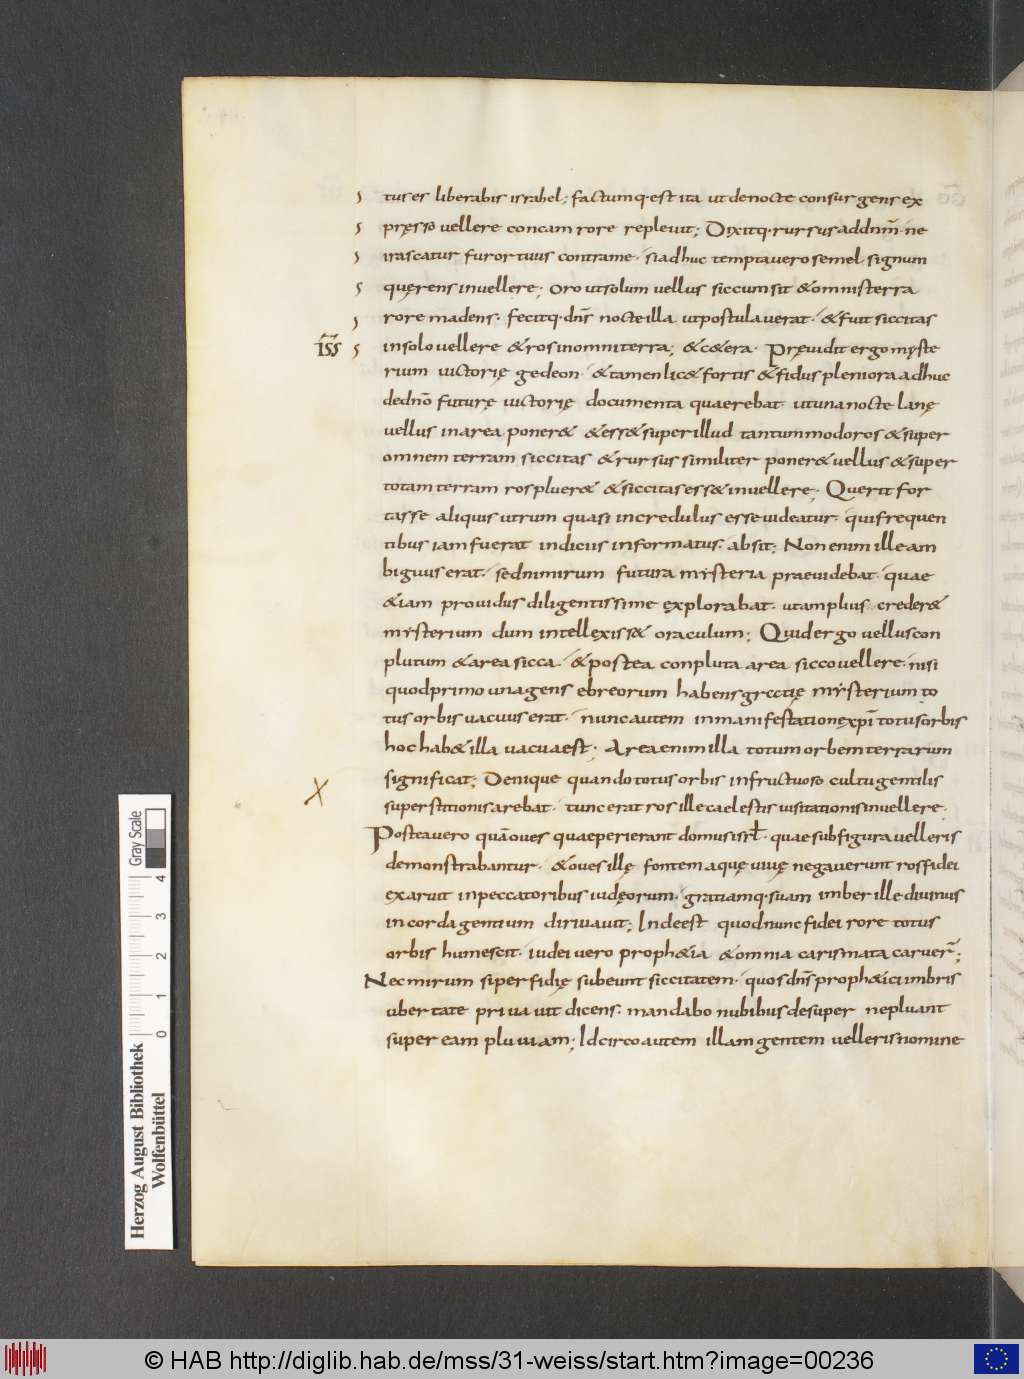 tus es liberabis israhel; factumq· est ita ut denocte consurgens ex
pręsso vellere concam rore replevit; Dixitq· rursus addnm̄· ne
irascatur furor tuus contrame· si adhuc temptavero semel signum
quęrens invellere; oro utsolum vellus siccum sit & omnisterra
rore madens· fecitq· dn̄s nocte illa utpostulaverat· & fuit siccitas
īs̄s̄ insolo vellere & ros inomni terra; & c&era· Pręvidit ergo myste
rium victorię gedeon· & tamen lic& fortis & fidus pleniora adhuc
dedn̄o futurę victorię documenta quaerebat· utuna nocte lanę
vellus inarea poner& & ess& super illud tantummodo ros & super
omnem terram siccitas & rursus similiter poner& vellus & super
totam terram ros pluer& & siccitas ess& invellere; Querit for
tasse aliquis utrum quasi incredulus esse videatur· qui frequen
tibus iam fuerat indiciis informatus· absit; Non enim ille am
biguus erat· sed nimirum futura mysteria praevidebat· quae
&iam providus diligentissime explorabat· utamplius creder&
mysterium dum intellexiss& oraculum; Quid ergo vellus con
plutum & area sicca· & postea conpluta area sicco vellere· nisi
quod primo una gens ebreorum habens gratię mysterium to
tus orbis vacuus erat· nunc autem inmanifestationę xp̄i totus orbis
hoc hab& illa vacua est; Area enim illa totum orbem terrarum
significat; Denique quando totus orbis infructuoso cultu gentilis
superstitionis arebat· tunc erat ros ille caelestis visitationis invellere·
Postea vero quā oves quae perierant domus isrł· quae sub figura velleris
demonstrabantur· & oves illę fontem aquę vivę negaverunt ros fidei
exaruit inpeccatoribus iudęorum· gratiamq· suam imber ille divinus
incorda gentium dirivavit; Inde est quod nunc fidei rore totus
orbis humescit· iudei vero proph&ia & omnia carismata caruer̄;
Nec mirum si perfidię subeunt siccitatem· quos dn̄s proph&ici imbris
ubertate privavit dicens· mandabo nubibus desuper ne pluant
super eam pluviam; Idcirco autem illam gentem velleris nomine
X
Gray Scale
0 1 2 3 4
Herzog August Bibliothek
Wolfenbüttel
© HAB http://diglib.hab.de/mss/31-weiss/start.htm?image=00236